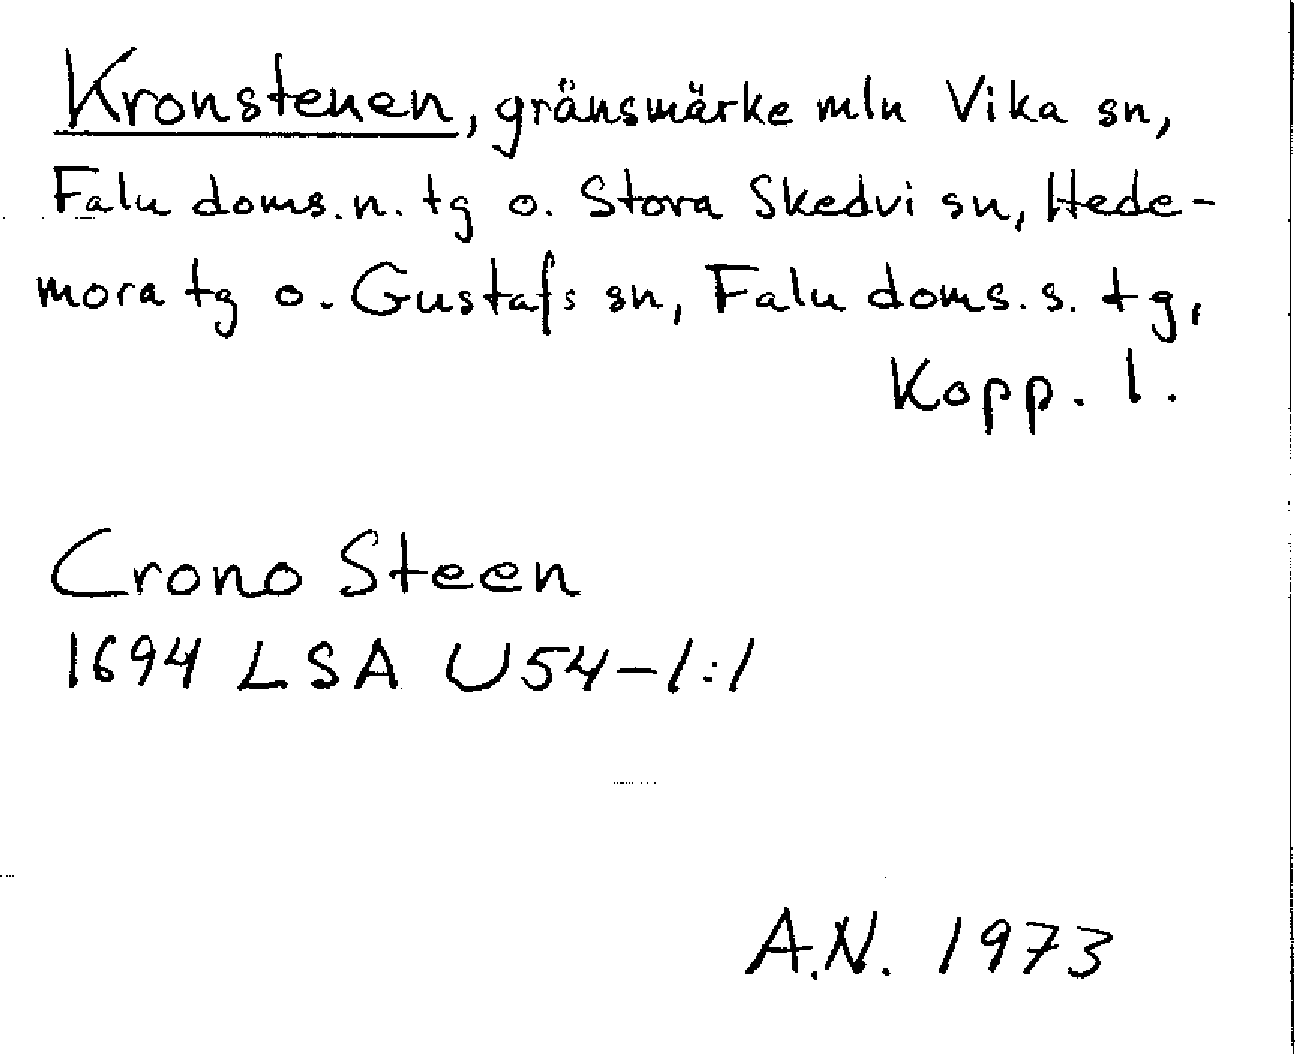 Kronstenen, gränsmärke mln Vika sn,
Falu doms. n. tg o. Stora Skedvi sn, Hede-
mora tg o. Gustafs sn, Falu doms. s. tg,
Kopp. l.
Crono Steen
1694 LSA U54-1:1
A.N. 1973